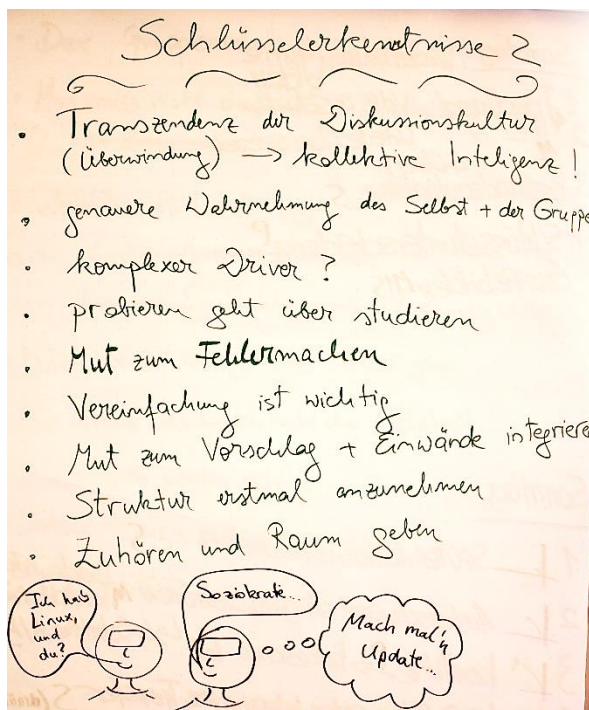 Schlüsselerkentnisse 2
• Transzendenz der Diskussionskultur
(Überwindung) → kollektive Inteligenz!
• genauere Wahrnehmung des Selbst + der Gruppe
• komplexer Driver?
• probieren geht über studieren
• Mut zum Fehlermachen
• Vereinfachung ist wichtig
• Mut zum Vorschlag + Einwände integriere
• Struktur erstmal anzunehmen
• Zuhören und Raum geben
Ich hab
Linux,
und
du?
Soziokratie...
Mach mal'n
Update...